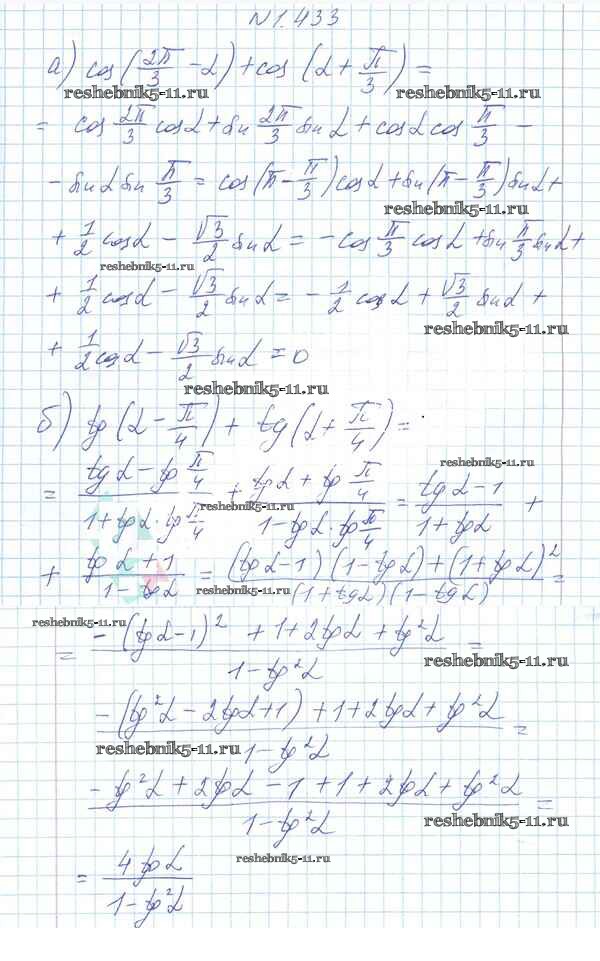 № 1.433
а) cos(2π/3 - α) + cos(α + π/3) =
reshebnik5-11.ru reshebnik5-11.ru
= cos 2π/3 cos α + sin 2π/3 sin α + cos α cos π/3 -
- sin α sin π/3 = cos(π - π/3) cos α + sin(π - π/3) sin α +
reshebnik5-11.ru
+ 1/2 cos α - √3/2 sin α = - cos π/3 cos α + sin π/3 sin α +
reshebnik5-11.ru
+ 1/2 cos α - √3/2 sin α = - 1/2 cos α + √3/2 sin α +
reshebnik5-11.ru
+ 1/2 cos α - √3/2 sin α = 0
reshebnik5-11.ru
б) tg(α - π/4) + tg(α + π/4) =
reshebnik5-11.ru
= (tg α - tg π/4)/(1 + tg α · tg π/4) + (tg α + tg π/4)/(1 - tg α · tg π/4) = (tg α - 1)/(1 + tg α) +
reshebnik5-11.ru
+ (tg α + 1)/(1 - tg α) = ((tg α - 1)(1 - tg α) + (1 + tg α)²)/((1 + tg α)(1 - tg α)) =
reshebnik5-11.ru
reshebnik5-11.ru
= (- (tg α - 1)² + 1 + 2tg α + tg² α)/(1 - tg² α) =
reshebnik5-11.ru
(- (tg² α - 2tg α + 1) + 1 + 2tg α + tg² α)/(1 - tg² α) =
reshebnik5-11.ru
(- tg² α + 2tg α - 1 + 1 + 2tg α + tg² α)/(1 - tg² α) =
reshebnik5-11.ru
reshebnik5-11.ru
= (4 tg α)/(1 - tg² α)